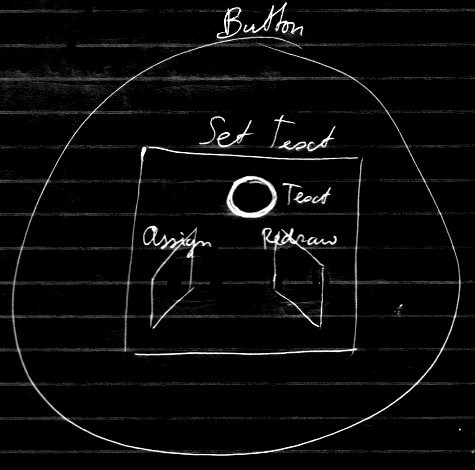 Button
Set Text
Text
Assign Redraw